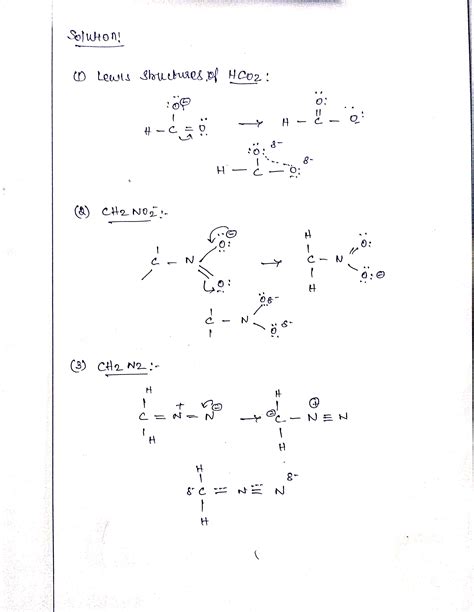 Solution!
(1) Lewis Structures of HCO2 :
:Ö:⊖
H - C = Ö: → H - C - Ö:
:O:
:O: δ-
H - C - O: δ-
(2) CH2 NO2⁻ :-
H
C - N
Ö:⊖
Ö:
→
C - N
O:
O:⊖
H
C - N
Oδ-
Oδ-
(3) CH2 N2 :-
H
C = N⁺ = N⊖ → ⊖C - N⊕ ≡ N
H
H
H
H
δ-C = N ≡ N δ-
H